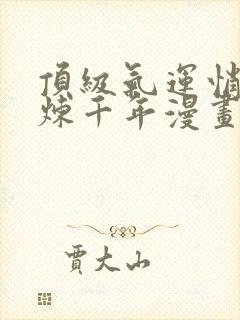 頂級氣運悄
煉千年漫畫
賈大山